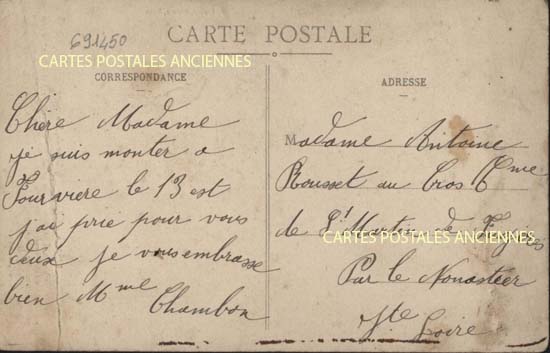 691450
CARTE POSTALE
CARTES POSTALES ANCIENNES
CORRESPONDANCE
Chère Madame
je suis monter a
Fourviere le 13 est
j'ai prie pour vous
deux je vous embrasse
bien Mme Chambon
ADRESSE
Madame Antoine
Rousset au Cros Cme
de St Martin de Fugères
CARTES POSTALES ANCIENNES
Par le Monastier
Hte Loire